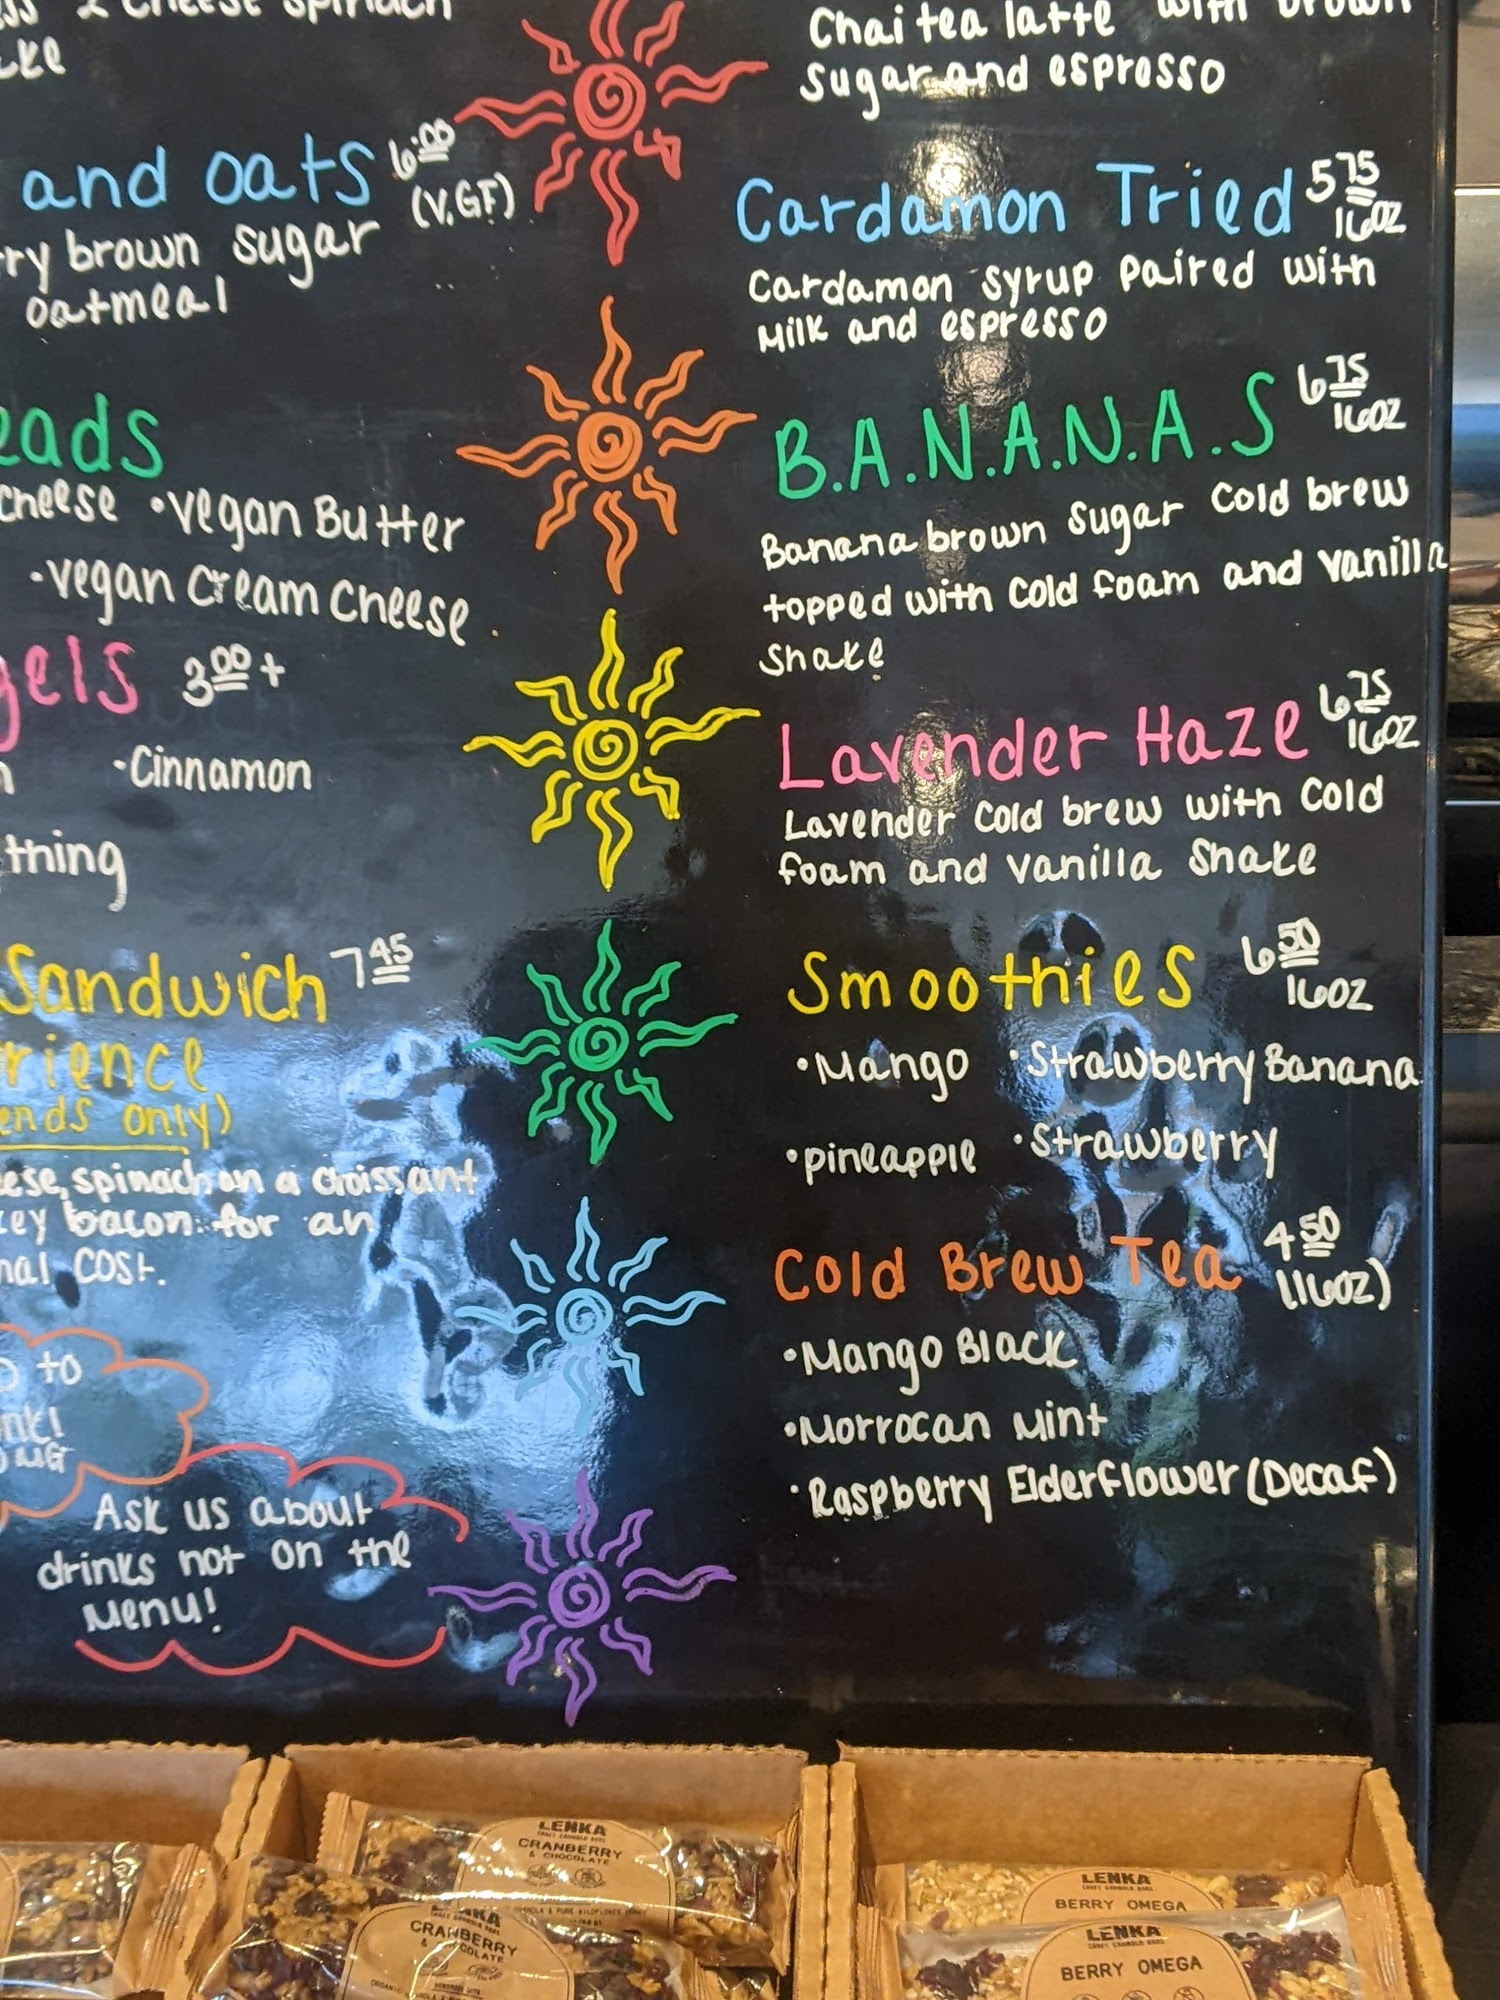 2 cheese spinach
and oats 6.00
(V.GF)
brown sugar
oatmeal
cheese •vegan Butter
•vegan cream cheese
3.00+
•Cinnamon
thing
Sandwich 7.45
only)
spinach on a croissant
bacon for an
cost.
to
Ask us about
drinks not on the
Menu!
Chai tea latte with brown
sugar and espresso
Cardamon Tried 5.75
16oz
Cardamon syrup paired with
Milk and espresso
B.A.N.A.N.A.S 6.75
16oz
Banana brown sugar cold brew
topped with cold foam and vanilla
shake
Lavender Haze 6.75
16oz
Lavender cold brew with cold
foam and vanilla shake
Smoothies 6.50
16oz
•Mango •Strawberry Banana
•pineapple •Strawberry
Cold Brew Tea 4.50
(16oz)
•Mango Black
•Morrocan Mint
•Raspberry Elderflower (Decaf)
LENKA
CRAFT GRANOLA BARS
CRANBERRY
& CHOCOLATE
LENKA
CRAFT GRANOLA BARS
CRANBERRY
& CHOCOLATE
LENKA
CRAFT GRANOLA BARS
BERRY OMEGA
LENKA
CRAFT GRANOLA BARS
BERRY OMEGA